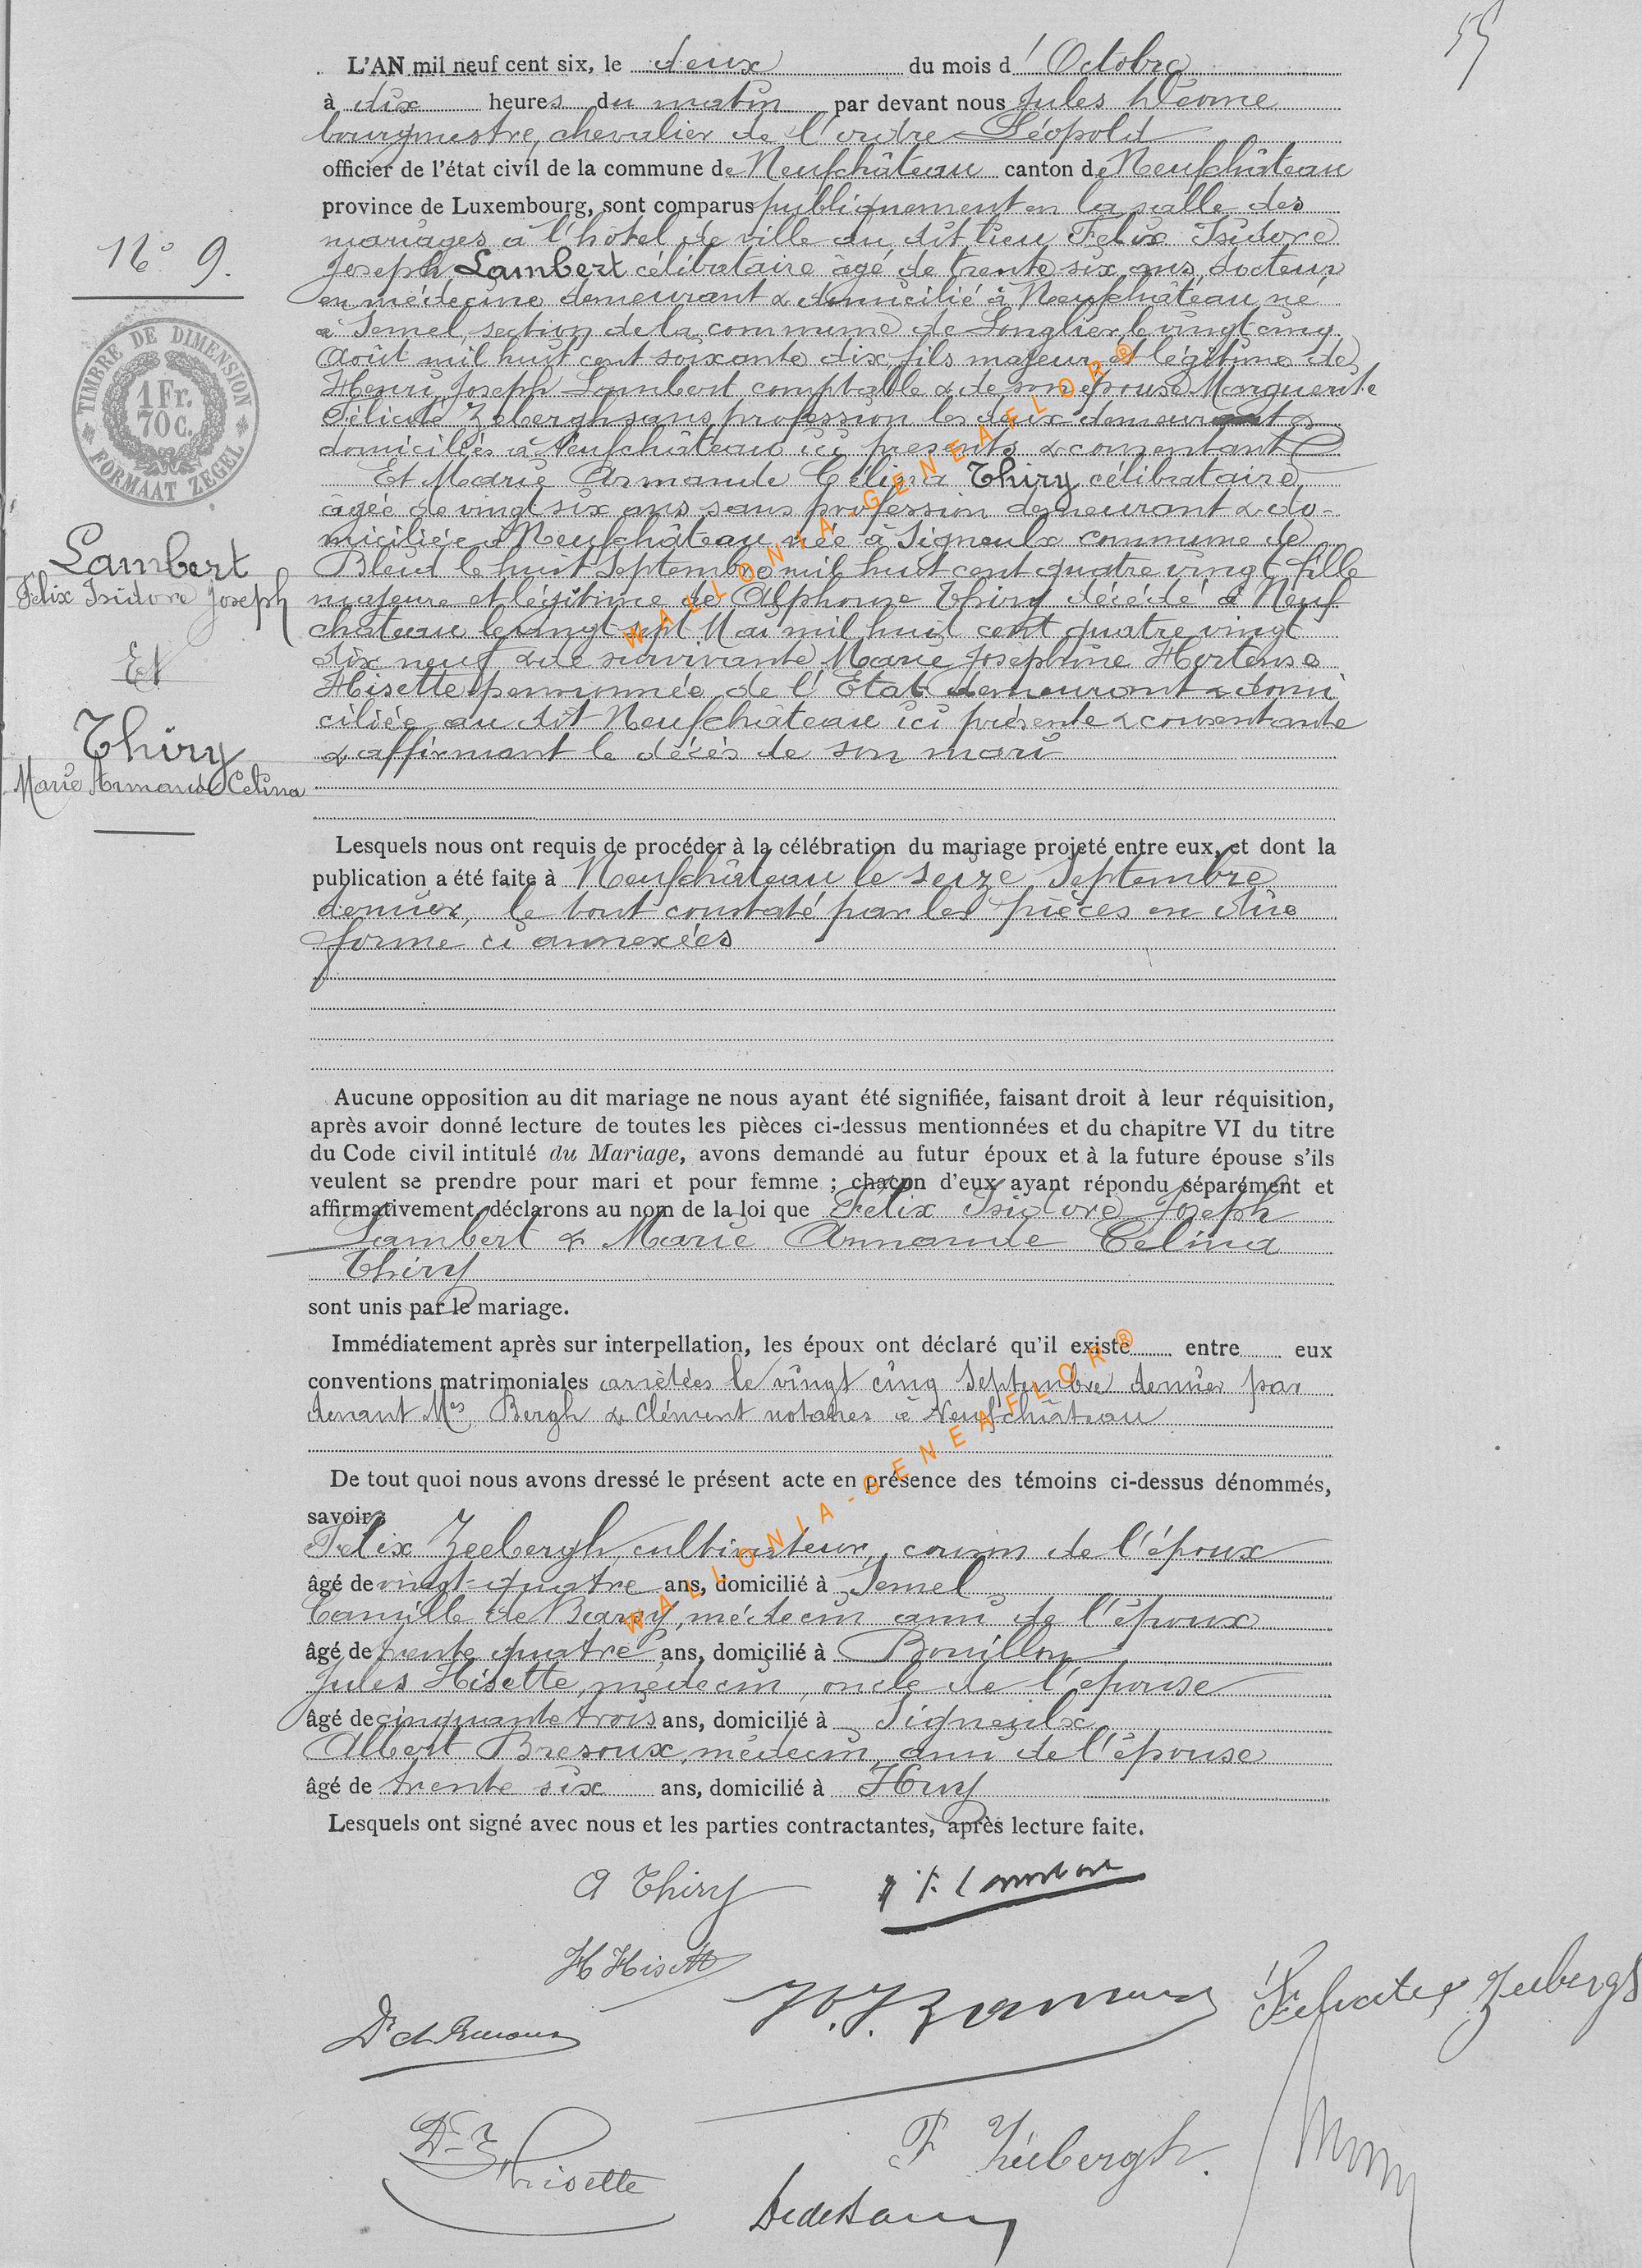 55
L'AN mil neuf cent six, le deux du mois d' Octobre
à dix heures du matin par devant nous Jules
bourgmestre, chevalier de l'ordre Léopold
officier de l'état civil de la commune de Neufchâteau canton de Neufchâteau
province de Luxembourg, sont comparus publiquement en la salle des
mariages à l'hôtel de ville du dit lieu Felix Isidore
Joseph Lambert célibataire âgé de trente six ans, docteur
en médecine demeurant & domicilié à Neufchâteau, né
à Semel, section de la commune de Longlier, le vingt cinq
Août mil huit cent soixante dix, fils majeur et légitime de
Henri Joseph Lambert comptable & de son épouse Marguerite
Félicité Zeebergh sans profession les deux demeurant &
domiciliés à Neufchâteau ici présents & consentants
Et Marie Armande Célina Thiry célibataire
âgée de vingt six ans sans profession demeurant & do-
miciliée à Neufchâteau, née à Signeulx commune de
Bleid le huit Septembre mil huit cent quatre vingt fille
majeure et légitime de Alphonse Thiry décédé à Neuf
château le vingt sept Mai mil huit cent quatre vingt
dix neuf & de survivante Marie Josephine Hortense
Hisette pensionnée de l'Etat demeurant & domi
ciliée au dit Neufchâteau ici présente & consentante
& affirmant le décès de son mari
N° 9.
TIMBRE DE DIMENSION
1 Fr.
70 C.
FORMAAT ZEGEL
Lambert
Felix Isidore Joseph
Et
Thiry
Marie Armande Celina
Lesquels nous ont requis de procéder à la célébration du mariage projeté entre eux, et dont la
publication a été faite à Neufchâteau le seize Septembre
dernier, le tout constaté par les pièces en due
forme ci annexées
Aucune opposition au dit mariage ne nous ayant été signifiée, faisant droit à leur réquisition,
après avoir donné lecture de toutes les pièces ci-dessus mentionnées et du chapitre VI du titre
du Code civil intitulé du Mariage, avons demandé au futur époux et à la future épouse s'ils
veulent se prendre pour mari et pour femme ; chacun d'eux ayant répondu séparément et
affirmativement, déclarons au nom de la loi que Félix Isidore Joseph
Lambert & Marie Armande Celina
Thiry
sont unis par le mariage.
Immédiatement après sur interpellation, les époux ont déclaré qu'il existe entre eux
conventions matrimoniales arrêtées le vingt cinq Septembre dernier par
devant Mes Bergh & Clément notaires à Neufchâteau
De tout quoi nous avons dressé le présent acte en présence des témoins ci-dessus dénommés,
savoir:
Felix Zeebergh, cultivateur, cousin de l'époux
âgé de vingt-quatre ans, domicilié à Semel
Camille de Barsy, médecin ami de l'époux
âgé de trente quatre ans, domicilié à Bouillon
Jules Hisette, médecin, oncle de l'épouse
âgé de cinquante trois ans, domicilié à Signeulx
Albert Bresoux, médecin, ami de l'épouse
âgé de trente six ans, domicilié à Huy
Lesquels ont signé avec nous et les parties contractantes, après lecture faite.
A Thiry
F. Lambert
H Hisette
Félicité Zeebergh
Dr
Dr J Hisette
F Zéebergh.
WALLONIA-GENEAFLOR®
WALLONIA-GENEAFLOR®